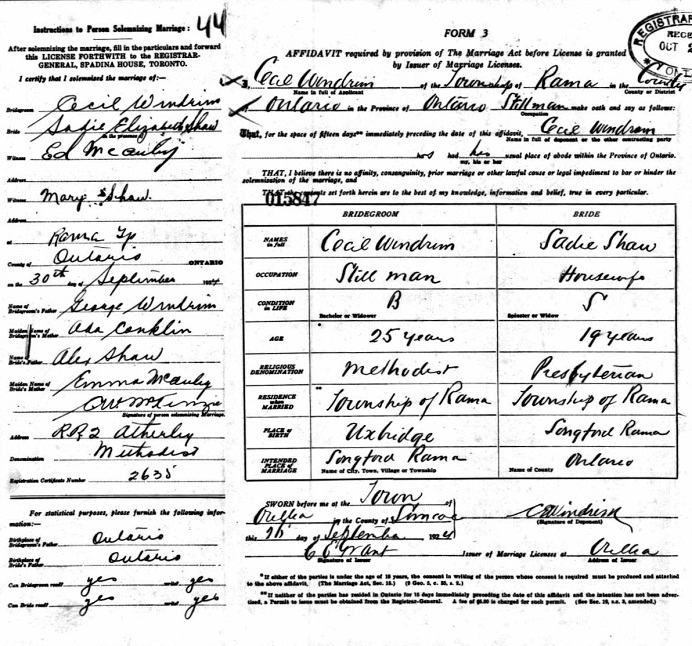 Instructions to Person Solemnizing Marriage:
44
After solemnizing the marriage, fill in the particulars and forward
this LICENSE FORTHWITH to the REGISTRAR-
GENERAL, SPADINA HOUSE, TORONTO.
I certify that I solemnized the marriage of:—
Bridegroom Cecil Windrim
Bride Sadie Elizabeth Shaw
in the presence of
Witness Ed McAuley
Address
Witness Mary Shaw.
Address
at Rama Tp
County of Ontario ONTARIO
on the 30th day of September 192
Name of Bridegroom's Father George Windrim
Maiden Name of Bridegroom's Mother Ada Conklin
Name of Bride's Father Alex Shaw
Maiden Name of Bride's Mother Emma McAuley
Signature of person solemnizing Marriage.
Address RR2 Atherley
Denomination Methodist
Registration Certificate Number 2635
For statistical purposes, please furnish the following infor-
mation:—
Birthplace of Bridegroom's Father Ontario
Birthplace of Bride's Father Ontario
Can Bridegroom read? yes write? yes
Can Bride read? yes write? yes
FORM 3
REGISTRAR
RECE
OCT 2
AFFIDAVIT required by provision of The Marriage Act before License is granted
by Issuer of Marriage Licenses.
I, Cecil Windrim of the Township of Rama in the County
Name in full of Applicant County or District
of Ontario in the Province of Ontario Still man make oath and say as follows:
Occupation
That, for the space of fifteen days** immediately preceding the date of this affidavit, Cecil Windrim
Name in full of deponent or the other contracting party
has had his usual place of abode within the Province of Ontario.
my, his or her
THAT, I believe there is no affinity, consanguinity, prior marriage or other lawful cause or legal impediment to bar or hinder the
solemnization of the marriage, and
THAT the contents set forth herein are to the best of my knowledge, information and belief, true in every particular.
015847
BRIDEGROOM BRIDE
NAMES in full Cecil Windrim Sadie Shaw
OCCUPATION Still man Housewife
CONDITION in LIFE B S
Bachelor or Widower Spinster or Widow
AGE 25 years 19 years
RELIGIOUS DENOMINATION Methodist Presbyterian
RESIDENCE when MARRIED Township of Rama Township of Rama
PLACE of BIRTH Uxbridge Longford Rama
INTENDED PLACE of MARRIAGE Longford Rama Ontario
Name of City, Town, Village or Township Name of County
SWORN before me at the Town of
Orillia in the County of Simcoe
this day of September 192
(Signature of Deponent)
Signature of Issuer
Issuer of Marriage Licenses at Orillia
Address of Issuer
*If either of the parties is under the age of 18 years, the consent in writing of the person whose consent is required must be produced and attached
to the above affidavit. (The Marriage Act, Sec. 15.) (9 Geo. 5, c. 35, s. 2.)
**If neither of the parties has resided in Ontario for 15 days immediately preceding the date of this affidavit and the intention has not been adver-
tised, a Permit to issue must be obtained from the Registrar-General. A fee of $5.00 is charged for such permit. (See Sec. 19, s.s. 3, amended.)